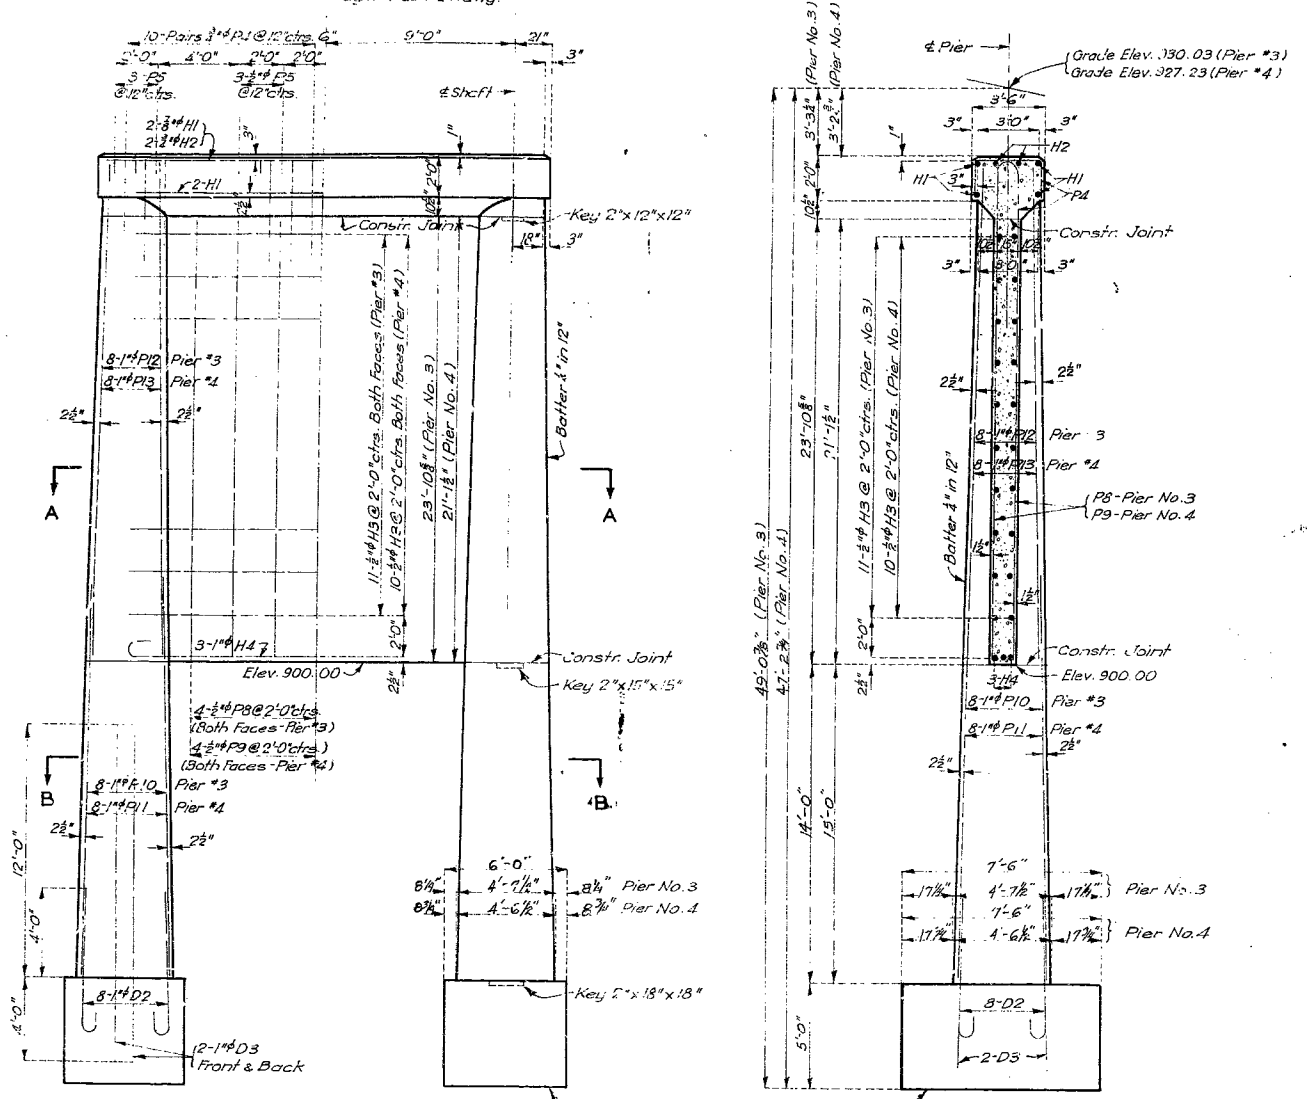 10-Pairs ¾"ᶲP4@12"ctrs. 6"
9'-0"
21"
2'-0"
4'-0"
2'-0"
2'-0"
3"
3-P5
@12"ctrs.
3-½"ᶲP5
@12"ctrs.
℄ Shaft
2-⅞"ᶲH1
2-¾"ᶲH2
3"
1"
2-H1
2½"
2'-0"
10½"
Constr. Joint
Key 2"x12"x12"
18"
3"
8-1"ᶲP12 Pier #3
8-1"ᶲP13 Pier #4
2½"
2½"
11-½"ᶲH3@2'-0"ctrs. Both Faces (Pier #3)
10-½"ᶲH3@2'-0"ctrs. Both Faces (Pier #4)
23'-10⅝" (Pier No.3)
21'-1½" (Pier No.4)
Batter ¼" in 12"
A
A
3-1"ᶲH4
2'-0"
Elev. 900.00
2½"
Constr. Joint
Key 2"x15"x15"
4-½"ᶲP8@2'-0"ctrs.
(Both Faces-Pier #3)
4-½"ᶲP9@2'-0"ctrs.)
(Both Faces-Pier #4)
B
B
8-1"ᶲP10 Pier #3
8-1"ᶲP11 Pier #4
2½"
2½"
12'-0"
4'-0"
4'-0"
6'-0"
8¼" 4'-7½" 8¼" Pier No.3
8¾" 4'-6½" 8¾" Pier No.4
8-1"ᶲD2
Key 2"x18"x18"
12-1"ᶲD3
Front & Back
(Pier No.3)
(Pier No.4)
℄ Pier
Grade Elev. 930.03 (Pier #3)
Grade Elev. 927.23 (Pier #4)
3'-6"
3" 3'-0" 3"
3'-3¼"
3'-2¾"
1"
H2
H1
3"
H1
P4
2'-0"
10½"
Constr. Joint
10½" 15" 10½"
3" 3'-0" 3"
11-½"ᶲH3@2'-0"ctrs. (Pier No.3)
10-½"ᶲH3@2'-0"ctrs. (Pier No.4)
23'-10⅝"
21'-1½"
2½"
2½"
8-1"ᶲP12 Pier 3
8-1"ᶲP13 Pier #4
Batter ¼" in 12"
P8-Pier No.3
P9-Pier No.4
1½"
1½"
49'-0⅞" (Pier No.3)
47'-2¾" (Pier No.4)
2'-0"
2½"
Constr. Joint
Elev. 900.00
3-H4
8-1"ᶲP10 Pier #3
8-1"ᶲP11 Pier #4
2½"
2½"
14'-0"
15'-0"
7'-6"
17¼" 4'-7½" 17¼" Pier No.3
7'-6"
17¾" 4'-6½" 17¾" Pier No.4
8-D2
2-D3
5'-0"